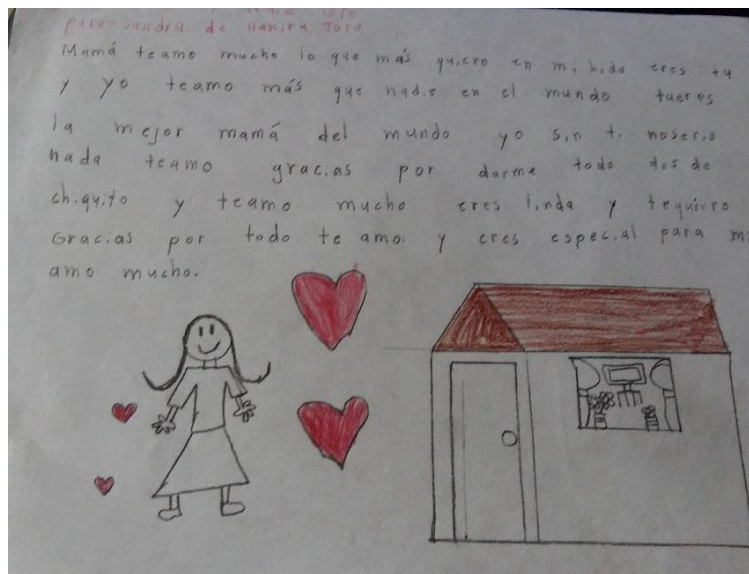 para sandra. de Yanira Toro
Mamá teamo mucho lo que más quiero en mi bida eres tu
y yo teamo más que nadie en el mundo tueres
la mejor mamá del mundo yo sin ti noseria
nada teamo gracias por darme todo des de
chiquito y teamo mucho eres linda y tequiero
Gracias por todo te amo. y eres especial para mi
amo mucho.